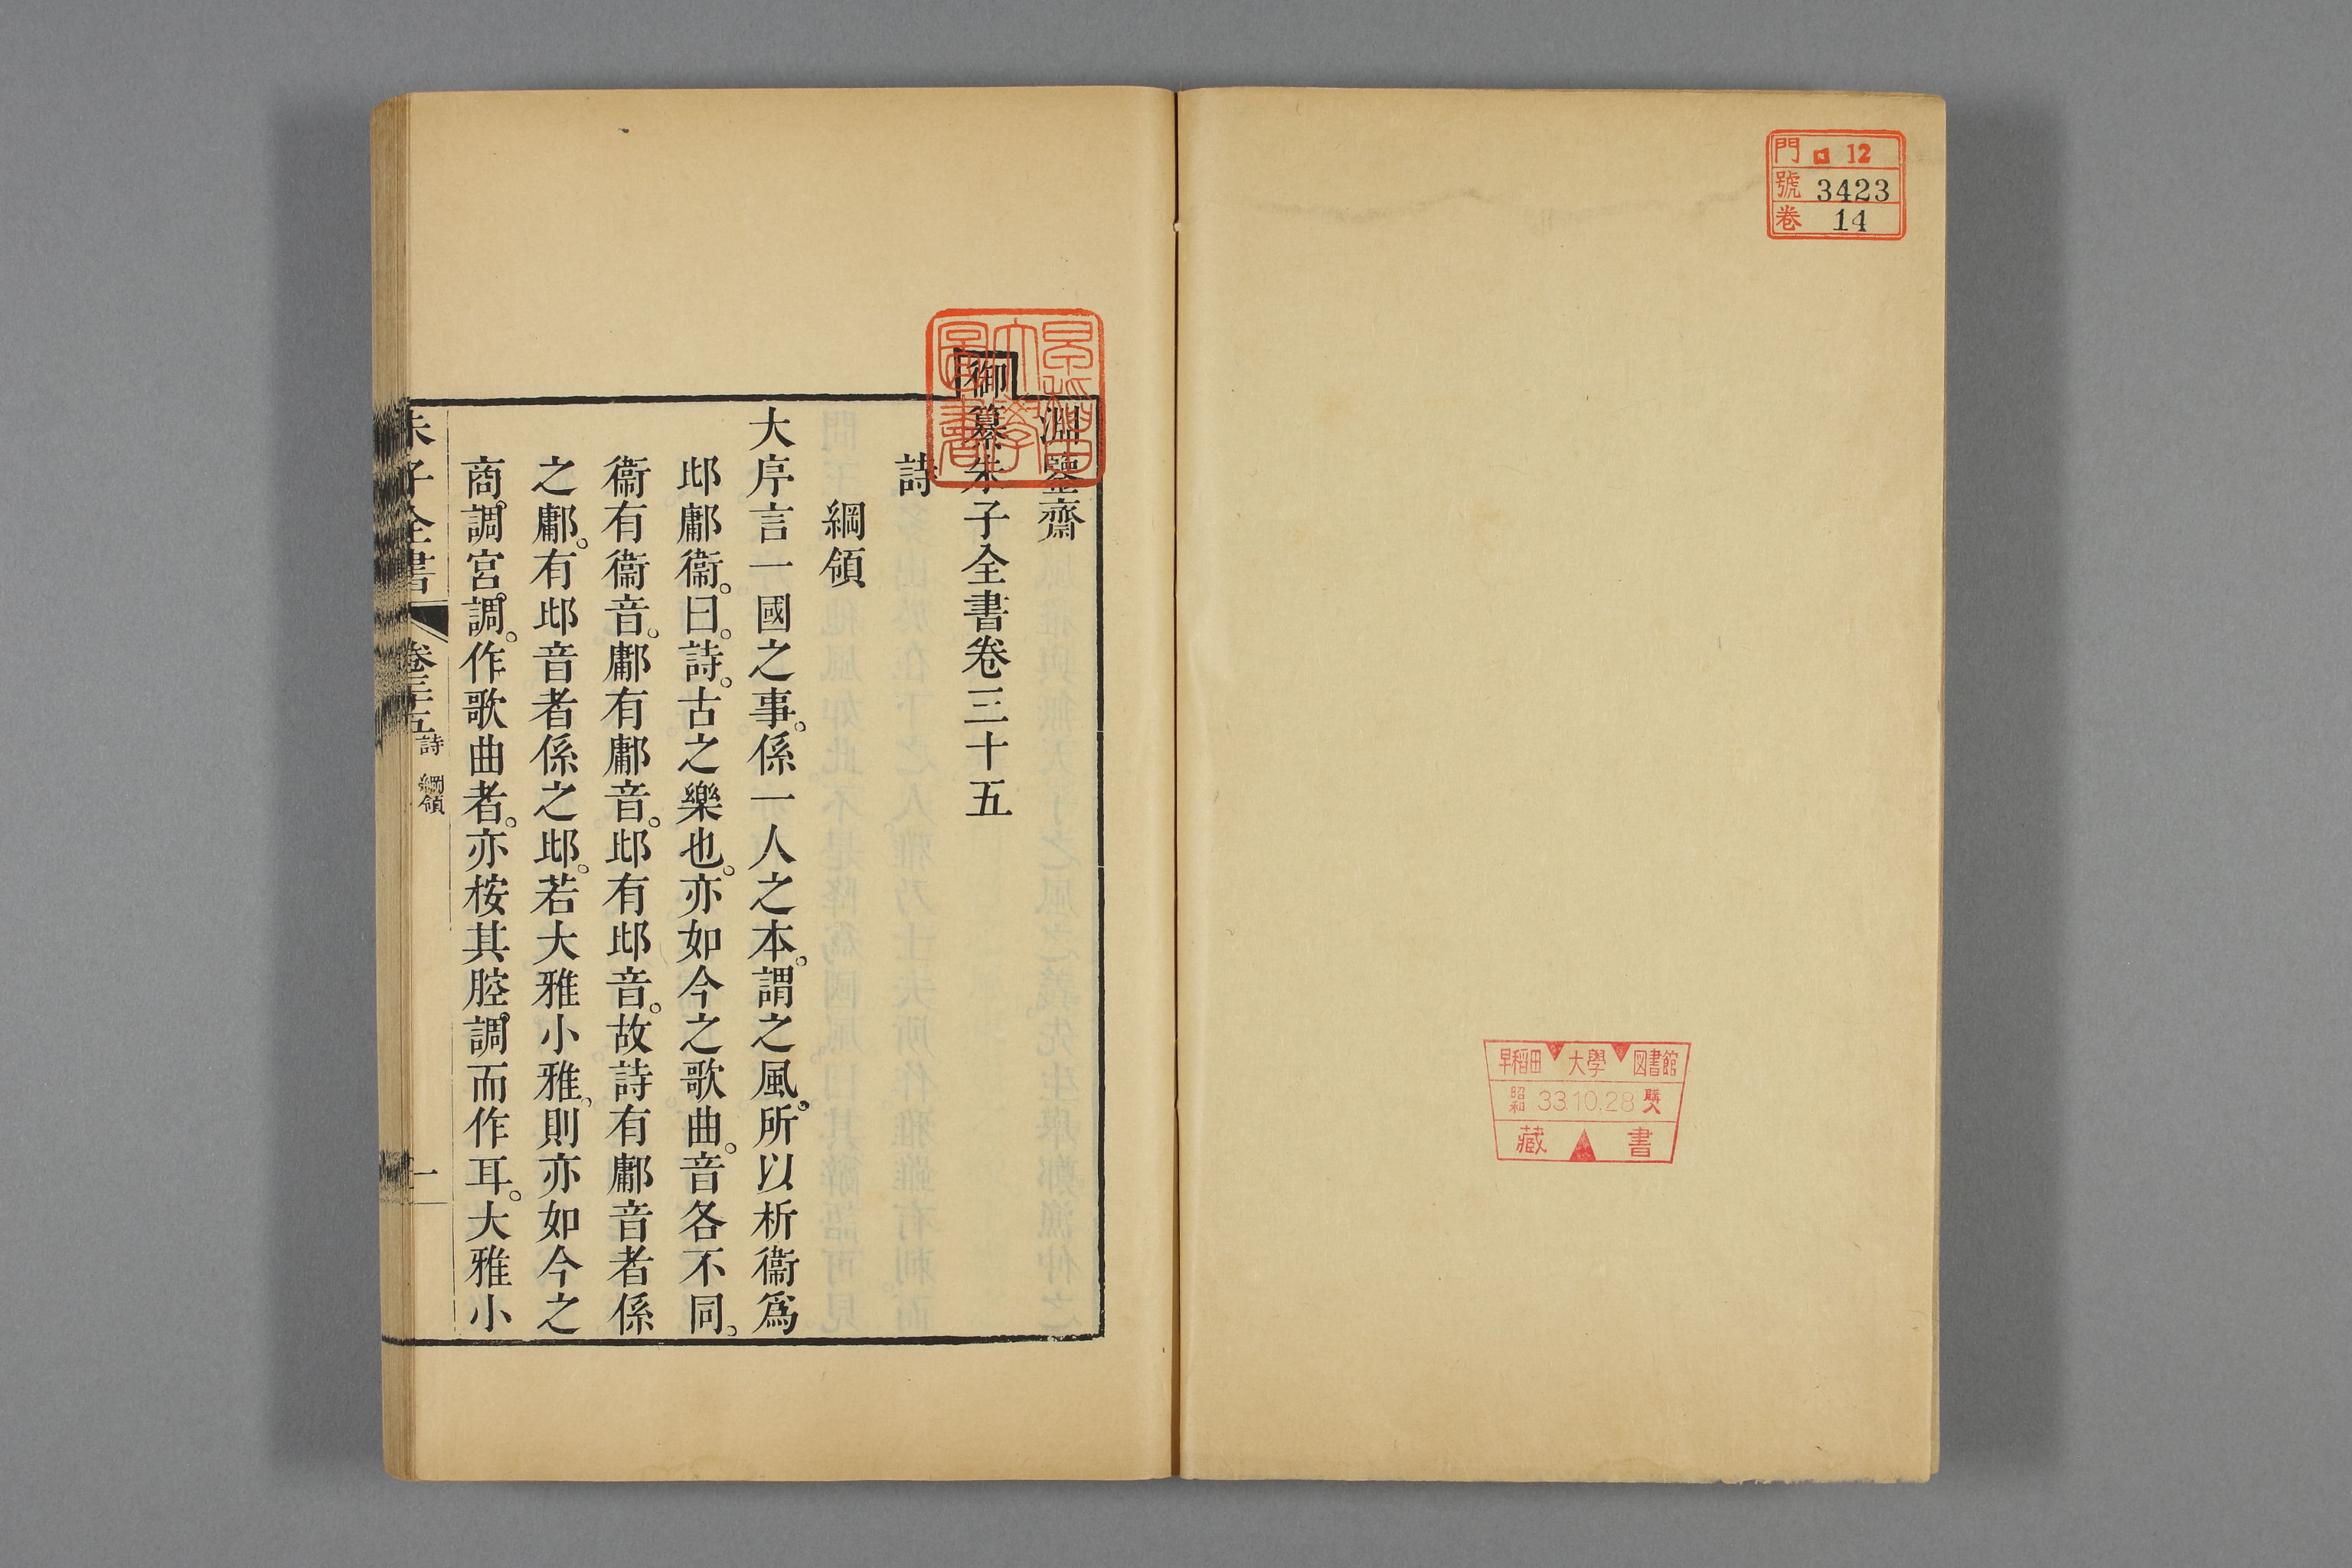 門 ロ 12
號 3423
卷 14
早稲田 大學 図書館
昭和 33.10.28 購入
藏 書
早稲田
大學
圖書
淵鑒齋
御纂朱子全書卷三十五
詩
綱領
大序言一國之事。係一人之本。謂之風。所以析衞爲
邶鄘衞。曰。詩。古之樂也。亦如今之歌曲。音各不同。
衞有衞音。鄘有鄘音。邶有邶音。故詩有鄘音者係
之鄘。有邶音者係之邶。若大雅小雅、則亦如今之
商。調宮。調。作歌曲者。亦桉其腔。調而作耳。大雅小
朱子全書 卷三十五 詩 綱領 一